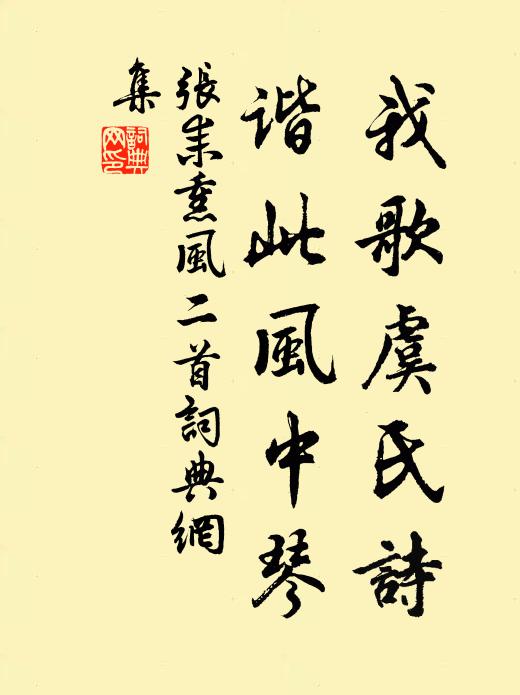 我歌虞氏詩
諧此風中琴
張耒熏風二首詞典網
集
詞典
网印